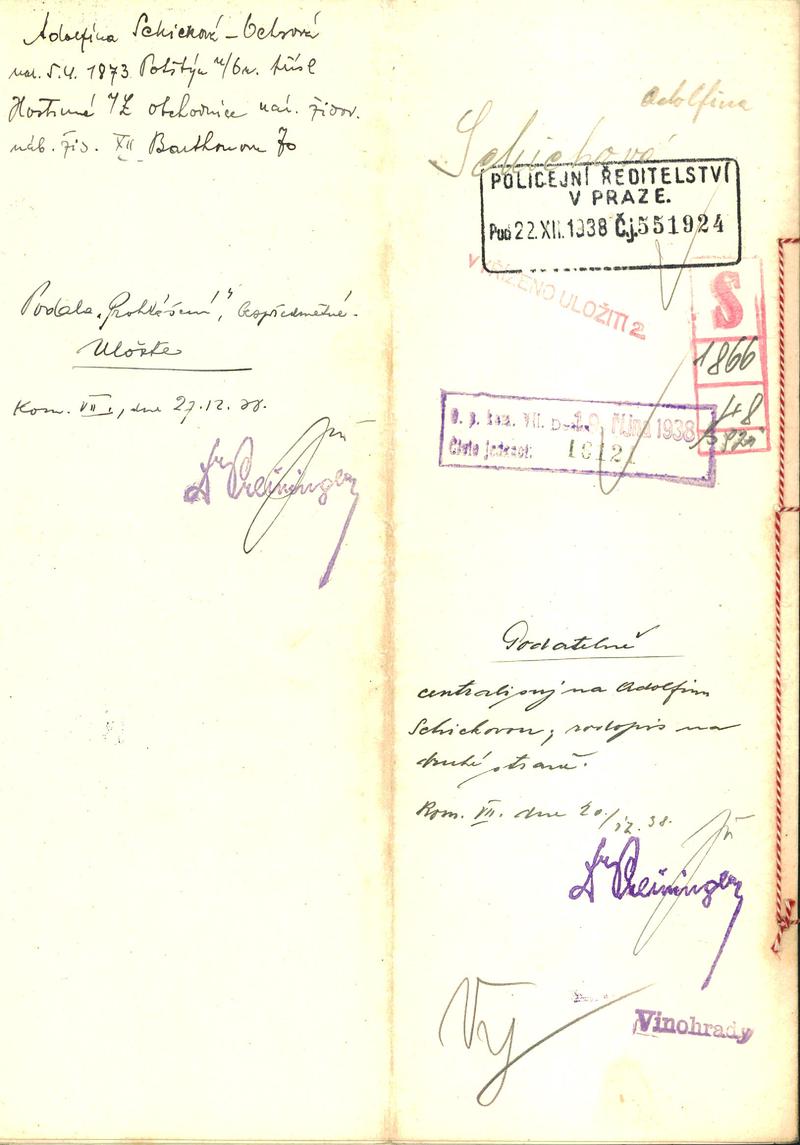 Adolfína Schicková – Ochsová
nar. 5.4. 1873 Potštýn n/Or. přísl
Hostinné n/L obchodnice nár. židov.
náb. žid. XII Barthonova 70
Podala „Prohlášení", bezpředmětné.
Uložte
Kom. VII., dne 27.12.38.
Dr Preininger
Adolfina
Schicková
POLICEJNÍ ŘEDITELSTVÍ
V PRAZE.
Pod 22.XII.1938 Č.j. 551924
VYŘÍZENO ULOŽITI 2
S
1866
48
VII. října 1938
Číslo jednací:
Podatelně
centralisuj na Adolfinu
Schickovou, rodopis na
druhé straně.
Kom. VII. dne 20/12.38.
Dr Preininger
Vy
Vinohrady